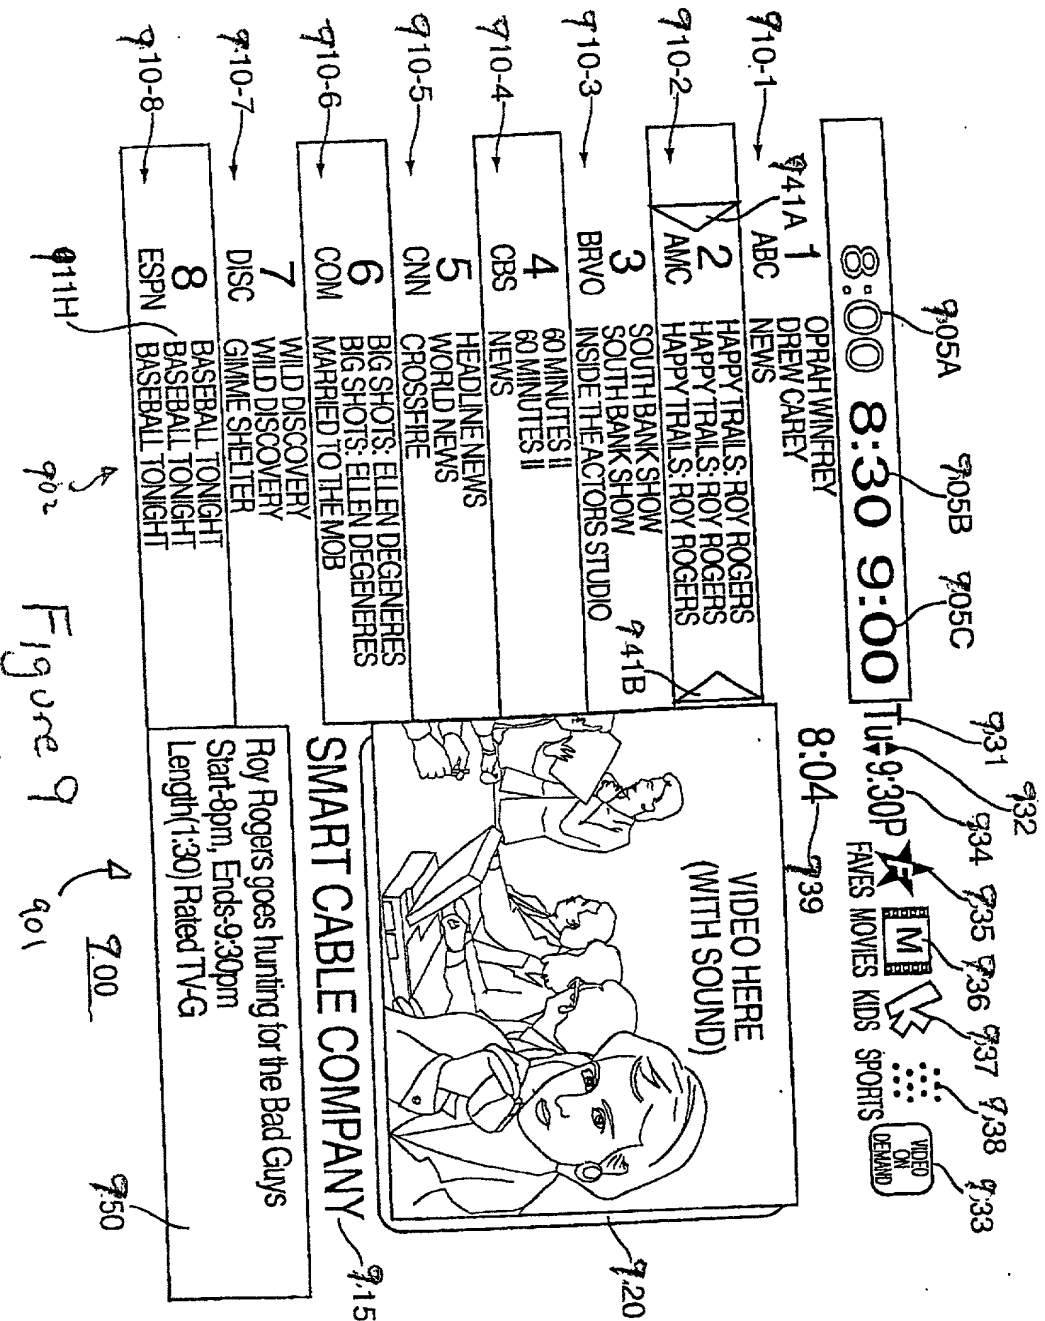 905A
905B
905C
931
932
934
935
936
937
938
933
8:00 8:30 9:00
Tu 9:30P
F
FAVES
M
MOVIES
K
KIDS
SPORTS
VIDEO
ON
DEMAND
8:04
939
910-1
1
ABC
OPRAH WINFREY
DREW CAREY
NEWS
941A
910-2
2
AMC
HAPPY TRAILS: ROY ROGERS
HAPPY TRAILS: ROY ROGERS
HAPPY TRAILS: ROY ROGERS
941B
910-3
3
BRVO
SOUTH BANK SHOW
SOUTH BANK SHOW
INSIDE THE ACTORS STUDIO
910-4
4
CBS
60 MINUTES II
60 MINUTES II
NEWS
910-5
5
CNN
HEADLINE NEWS
WORLD NEWS
CROSSFIRE
910-6
6
COM
BIG SHOTS: ELLEN DEGENERES
BIG SHOTS: ELLEN DEGENERES
MARRIED TO THE MOB
910-7
7
DISC
WILD DISCOVERY
WILD DISCOVERY
GIMME SHELTER
910-8
8
ESPN
BASEBALL TONIGHT
BASEBALL TONIGHT
BASEBALL TONIGHT
911H
902
VIDEO HERE
(WITH SOUND)
920
SMART CABLE COMPANY
915
Roy Rogers goes hunting for the Bad Guys
Start-8pm, Ends-9:30pm
Length(1:30) Rated TV-G
950
900
901
Figure 9